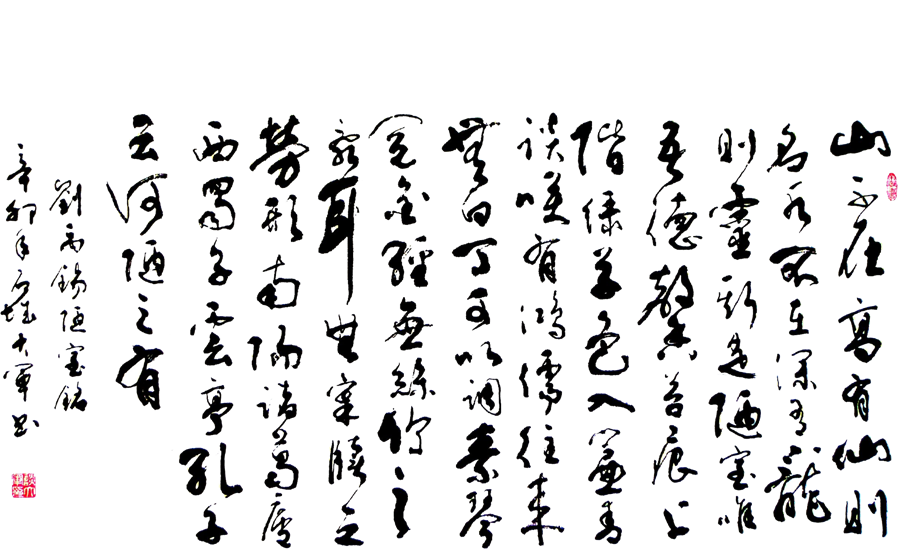 山不在高有仙則
名水不在深有龍
則靈斯是陋室唯
吾德馨苔痕上
階緑草色入簾青
談咲有鴻儒往来
無白丁可以調素琴
閲金經無絲竹之
亂耳無案牘之
勞形南陽諸葛廬
西蜀子雲亭孔子
云何陋之有
劉禹錫陋室銘
辛卯年石城大軍书